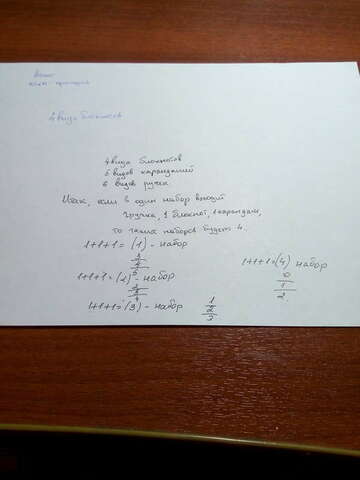 4 вида блокнотов
4 вида блокнотов
5 видов карандашей
6 видов ручек.
Итак, если в один набор входит
1 ручка, 1 блокнот, 1 карандаш,
то таких наборов будет 4.
1+1+1=(1) - набор
1+1+1=(2) - набор
1+1+1=(3) - набор
1+1+1=(4) набор
0
1
2
1
2
3